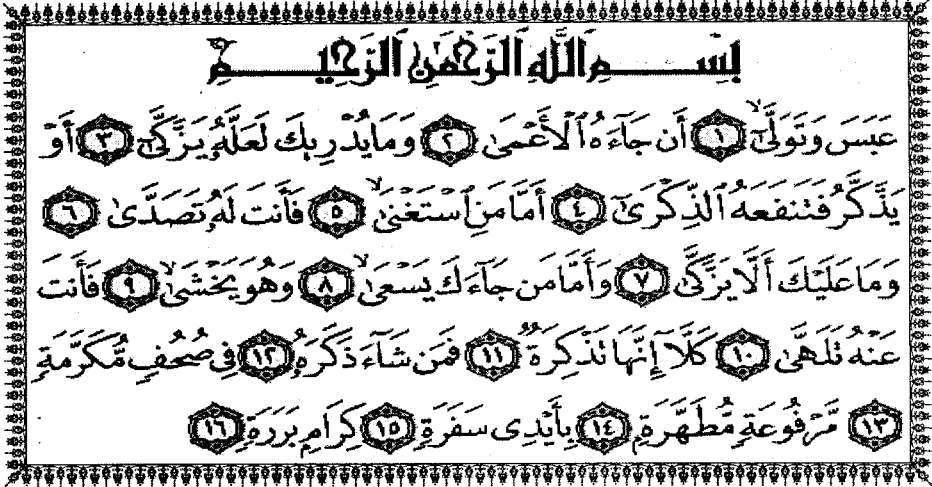 بِسْمِ ٱللَّهِ ٱلرَّحْمَٰنِ ٱلرَّحِيمِ
عَبَسَ وَتَوَلَّىٰٓ ۙ ١ أَن جَآءَهُ ٱلْأَعْمَىٰ ٢ وَمَا يُدْرِيكَ لَعَلَّهُۥ يَزَّكَّىٰٓ ۙ ٣ أَوْ
يَذَّكَّرُ فَتَنفَعَهُ ٱلذِّكْرَىٰٓ ٤ أَمَّا مَنِ ٱسْتَغْنَىٰ ۙ ٥ فَأَنتَ لَهُۥ تَصَدَّىٰ ٦
وَمَا عَلَيْكَ أَلَّا يَزَّكَّىٰ ٧ وَأَمَّا مَن جَآءَكَ يَسْعَىٰ ۙ ٨ وَهُوَ يَخْشَىٰ ۙ ٩ فَأَنتَ
عَنْهُ تَلَهَّىٰ ١٠ كَلَّآ إِنَّهَا تَذْكِرَةٌ ١١ فَمَن شَآءَ ذَكَرَهُۥ ١٢ فِى صُحُفٍ مُّكَرَّمَةٍ
١٣ مَّرْفُوعَةٍ مُّطَهَّرَةٍ ١٤ بِأَيْدِى سَفَرَةٍ ١٥ كِرَامٍ بَرَرَةٍ ١٦